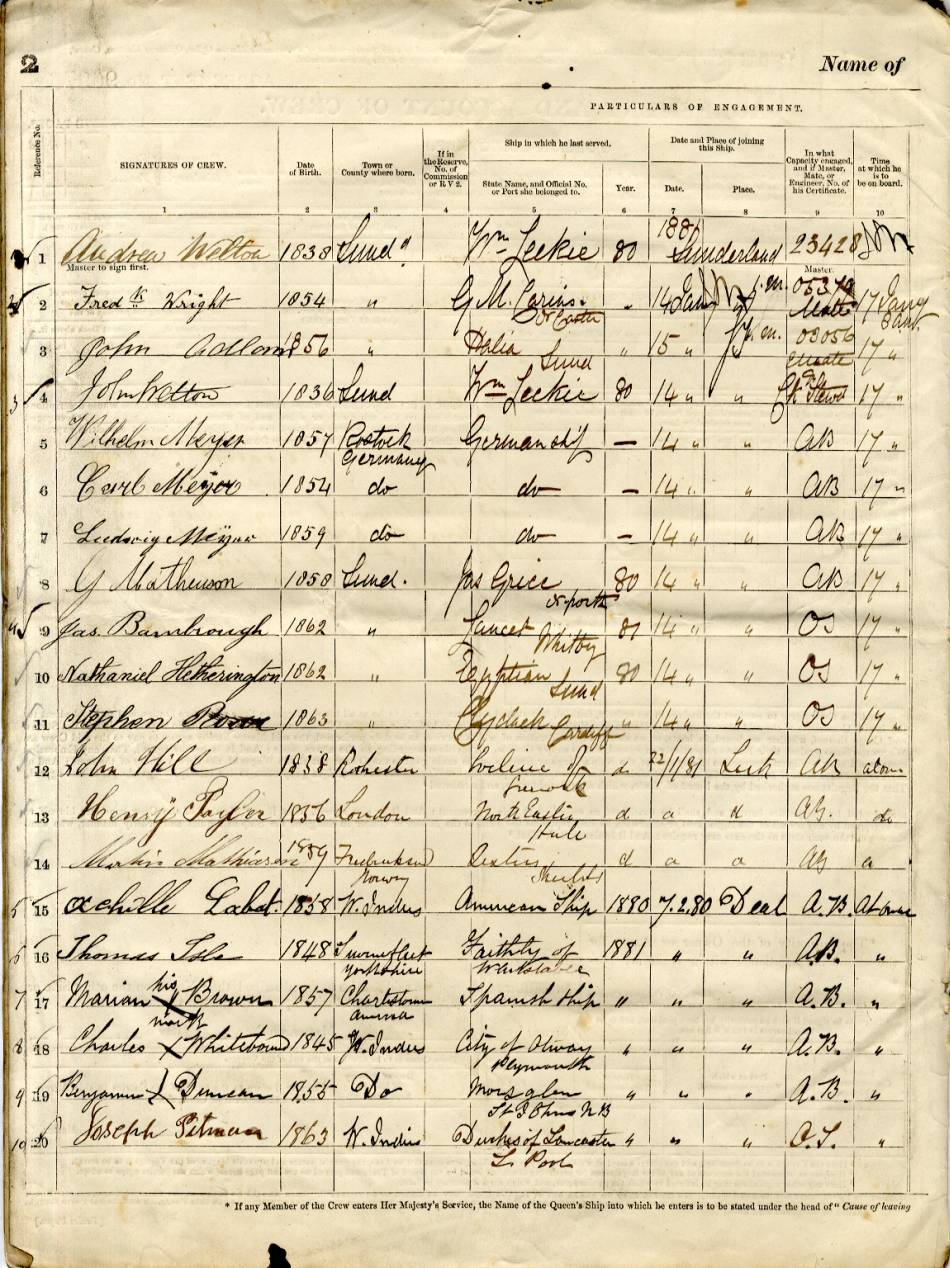 2
Name of
PARTICULARS OF ENGAGEMENT.
Reference No.
SIGNATURES OF CREW.
Date of Birth.
Town or County where born.
If in the Reserve, No. of Commission or R V 2.
Ship in which he last served.
State Name, and Official No. or Port she belonged to.
Year.
Date and Place of joining this Ship.
Date.
Place.
In what Capacity engaged, and if Master, Mate, or Engineer, No. of his Certificate.
Time at which he is to be on board.
1 2 3 4 5 6 7 8 9 10
1881
1 Andrew Welton 1838 Sund" Wm Leckie 80 Sunderland 23428
Master to sign first. Master.
2 Fredk Wright 1854 " G M. 14 Jany 17 Jany
3 John 1856 " Sund " 15 " 03056 Mate 17 "
4 John Welton 1836 Sund Wm Leckie 80 14 " " Stewd 17 "
5 Wilhelm Meyer 1857 Rostock Germany German ship — 14 " " AB 17 "
6 Carl Meyer 1854 do do — 14 " " AB 17 "
7 Ludwig Meyer 1859 do do — 14 " " AB 17 "
8 G Matheuson 1850 Sund. Jas Grice 80 14 " " AB 17 "
9 Jas. Barnbrough 1862 " Lancet Whitby 81 14 " " OS 17 "
10 Nathaniel Hetherington 1862 " Egyptian Sund 80 14 " " OS 17 "
11 Stephen 1863 " Cardiff " 14 " " OS 17 "
12 John Hill 1838 Rochester of d 22/1/81 AB
13 Henry Taylor 1856 London North Eastern Hull d a d AB. do
14 Martin Mathiasen 1859 Norway Shields d a a AB a
15 Achille Labat. 1858 W. Indies American Ship 1880 7.2.80 Deal A.B. At once
16 Thomas Isle 1848 Yorkshire Faithful of Whitstable 1881 " " A.B. "
17 Marian his X mark Brown 1857 America Spanish Ship " " " A.B. "
18 Charles X Whitebound 1845 W. Indies City of Plymouth " " " A.B. "
19 Benjamin X Duncan 1855 Do St Johns N B " " " A.B. "
20 Joseph Pitman 1863 W. Indies Duchess of Lancaster L. Pool " " " O.S. "
* If any Member of the Crew enters Her Majesty's Service, the Name of the Queen's Ship into which he enters is to be stated under the head of "Cause of leaving